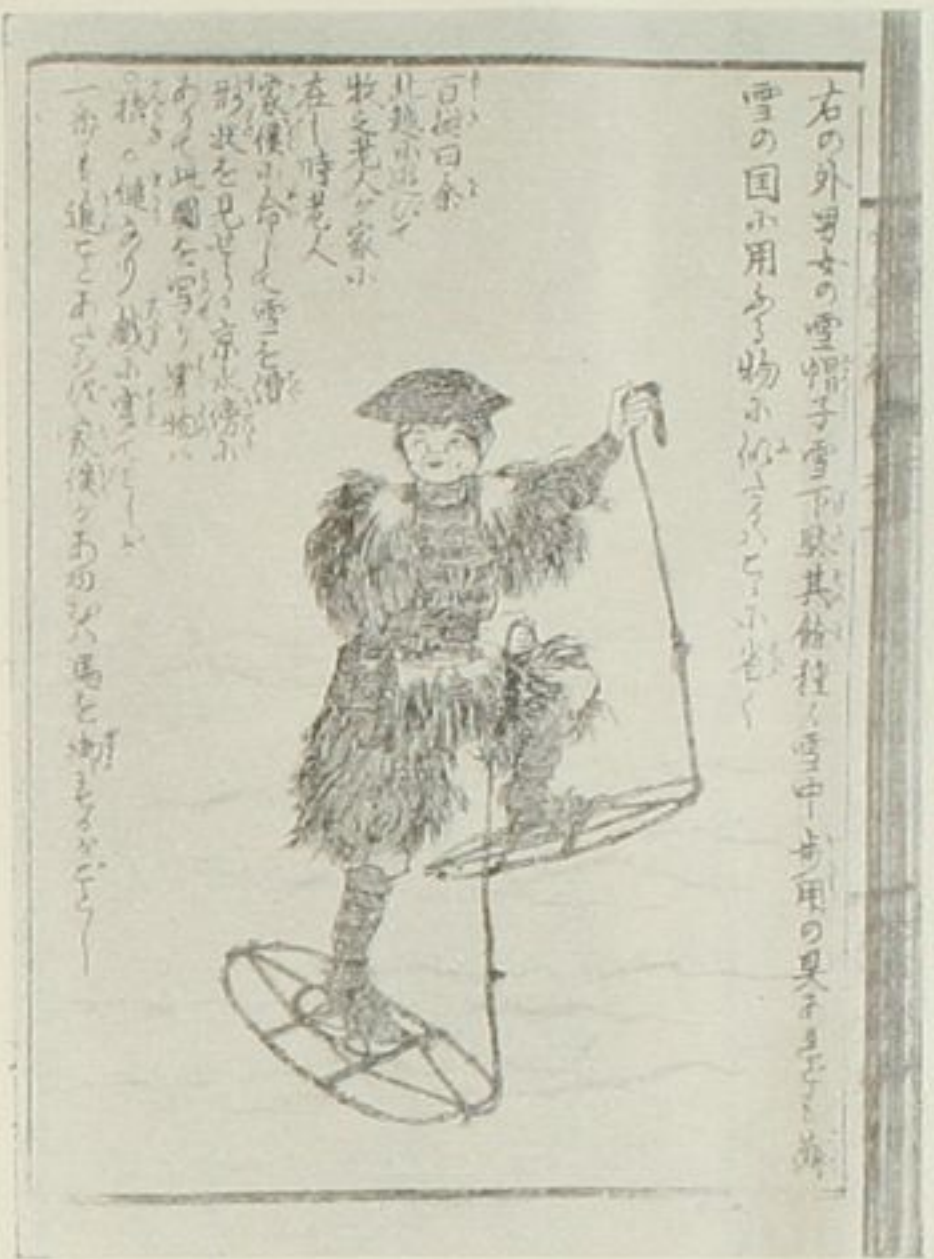 右の外男女の雪帽子雪下駄其余種〻雪中歩用の具あまたあれど薄
雪の国に用ふる物に似たるハこゝに省く
百樹曰余
北越に遊びて
牧之老人が家に
在し時老人
家僕に命じて雪を漕
形状を見せらる京水傍に
ありて此図を写り穿物ハ
○橇○縋なり戯に穿てしが
一歩も進ことあたはず家僕があゆむハ馬を御するがごとし